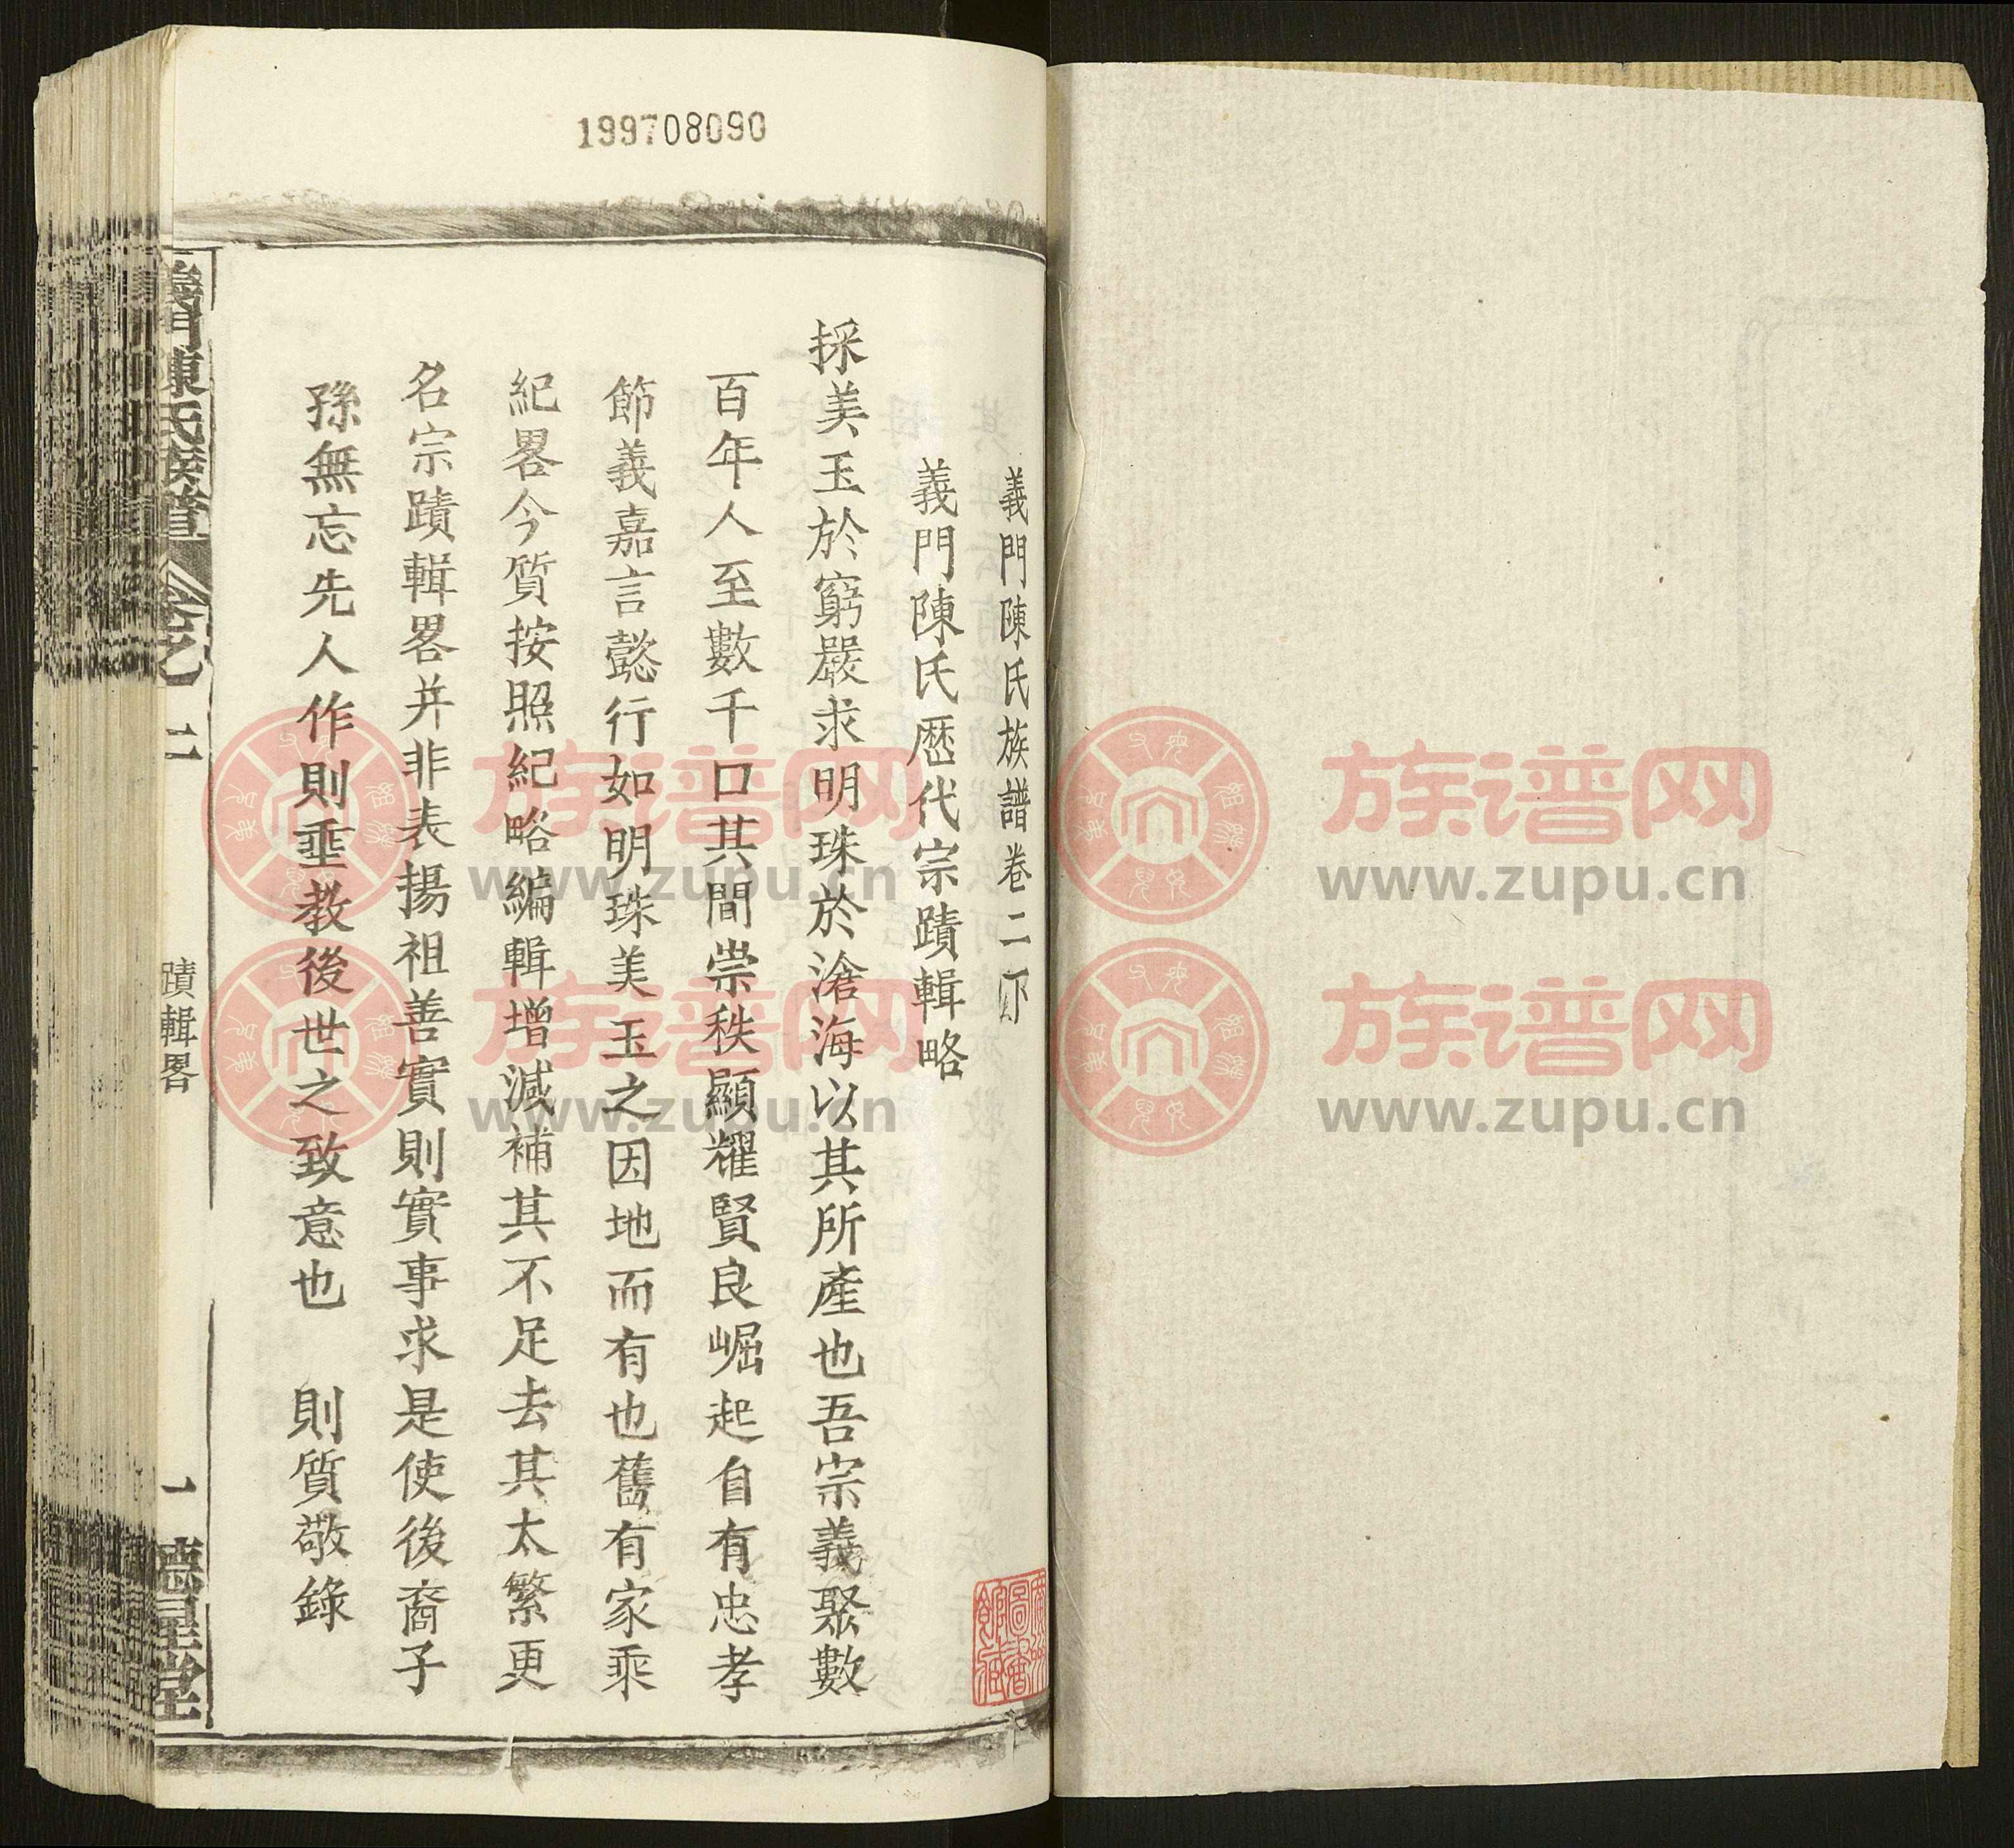 199708090
義門陳氏族譜卷二下
義門陳氏歷代宗蹟輯略
採美玉於窮巖求明珠於滄海以其所產也吾宗義聚數
百年人至數千口其間崇秩顯耀賢良崛起自有忠孝
節義嘉言懿行如明珠美玉之因地而有也舊有家乘
紀畧今質按照紀略編輯增減補其不足去其太繁更
名宗蹟輯畧并非表揚祖善實則實事求是使後裔子
孫無忘先人作則垂教後世之致意也 則質敬錄
義門陳氏族譜 卷之二 蹟輯畧 一 德星堂
族谱网
www.zupu.cn
族谱网
www.zupu.cn
族谱网
www.zupu.cn
族谱网
www.zupu.cn